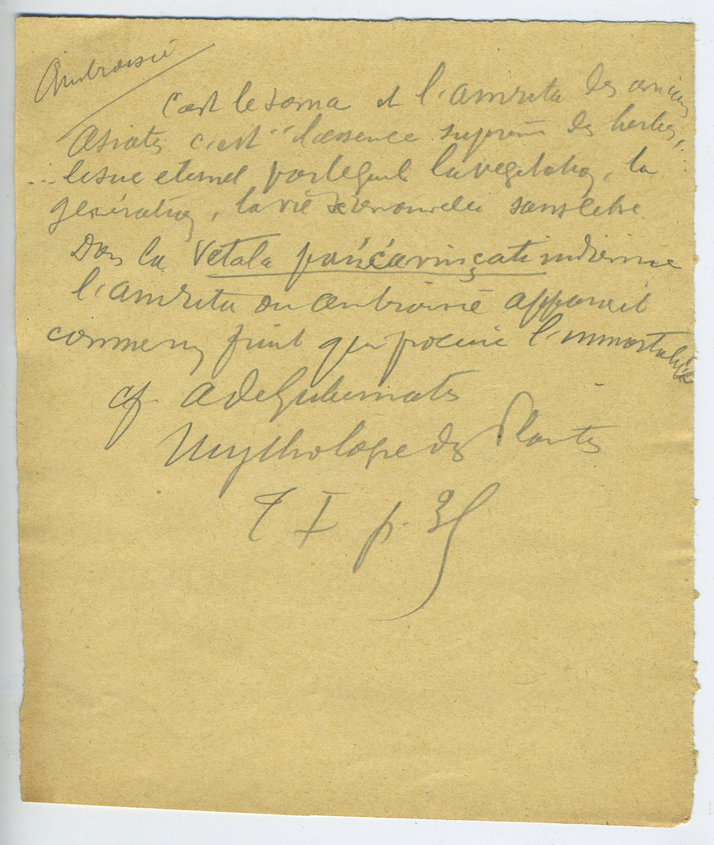 Ambroisie
C'est le soma et l'amrita des anciens
Asiates c'est "l'essence suprême des herbes,
... le suc eternel par lequel la vegetation, la
generation, la vie se renouvelle sans cesse
Dans la Vetala pańcavinçati indienne
l'amrita ou ambroisie apparait
comme un fruit qui procure l'immortalité
cf A de Gubernatis
Mythologie des Plantes
T I p.